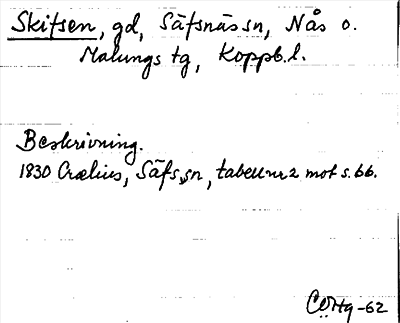 Skifsen, gd, Säfsnäs sn, Nås o.
Malungs tg, Koppb.l.
Beskrivning.
1830 Crælius, Säfs sn, tabell nr 2 mot s. 66.
CÖHg -62